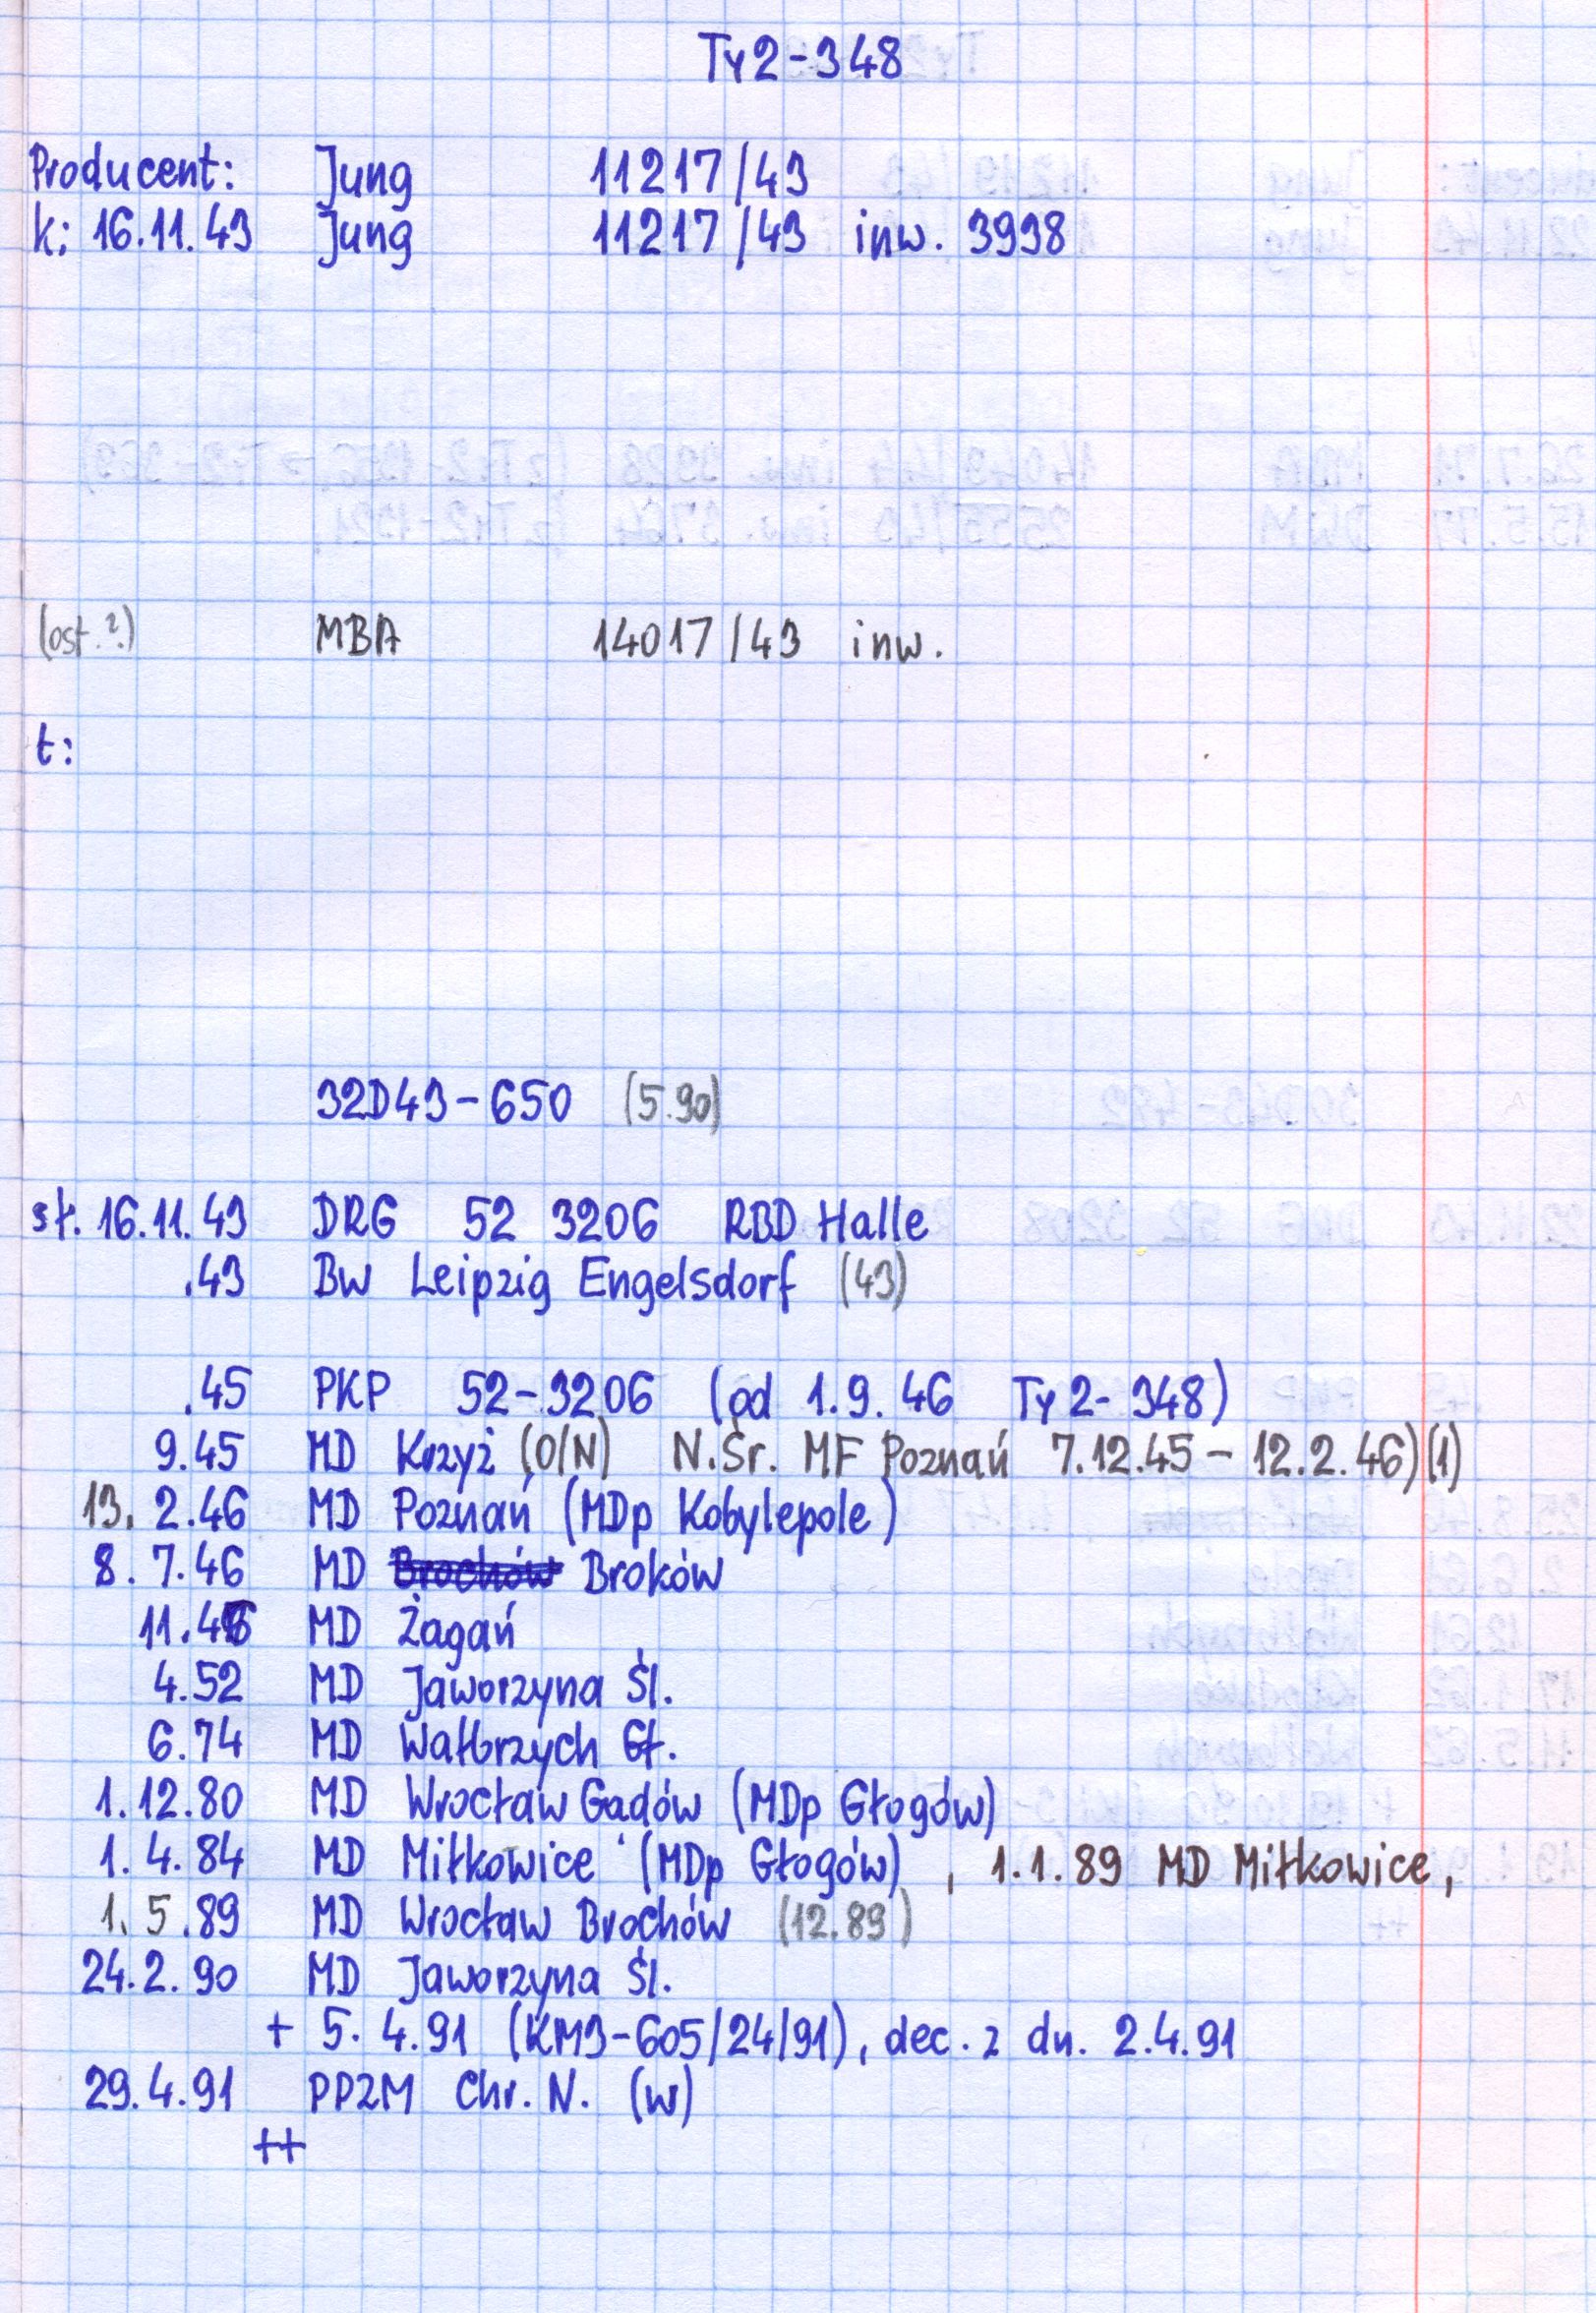 Ty2-348
Producent: Jung 11217/43
k: 16.11.43 Jung 11217/43 inw. 3998
(ost.?) MBA 14017/43 inw.
t:
32D43-650 (5.90)
st. 16.11.43 DRG 52 3206 RBD Halle
.43 Bw Leipzig Engelsdorf (43)
.45 PKP 52-3206 (od 1.9.46 Ty2-348)
9.45 MD Krzyż (O/N) N.Śr. MF Poznań 7.12.45 - 12.2.46)(1)
13. 2.46 MD Poznań (MDp Kobylepole)
8. 7.46 MD Brochów Broków
11.46 MD Żagań
4.52 MD Jaworzyna Śl.
6.74 MD Wałbrzych Gł.
1.12.80 MD Wrocław Gadów (MDp Głogów)
1. 4. 84 MD Miłkowice (MDp Głogów) , 1.1.89 MD Miłkowice,
1. 5 .89 MD Wrocław Brochów (12.89)
24.2. 90 MD Jaworzyna Śl.
+ 5. 4.91 (KM3-605/24/91), dec. z dn. 2.4.91
29.4.91 PPZM Chr. N. (w)
++